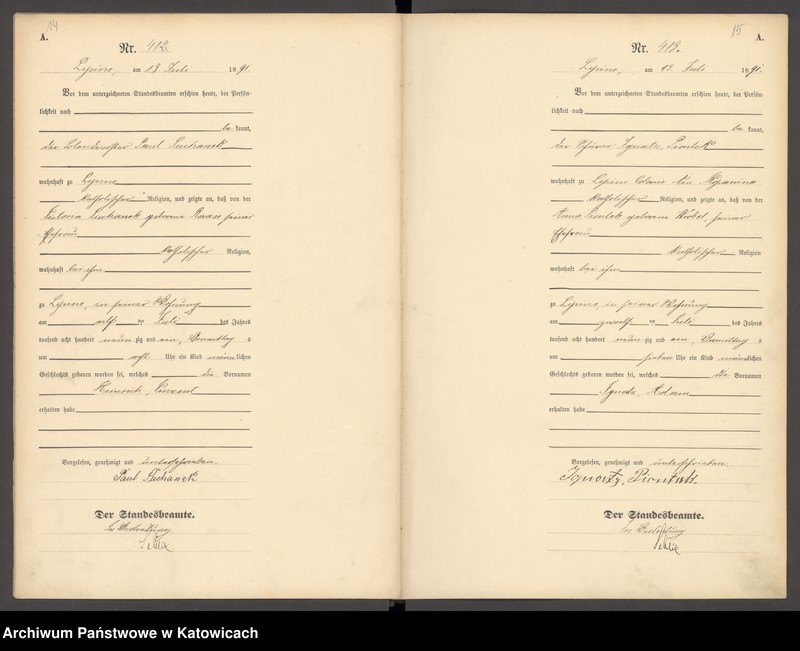 14
A.
Nr. 412.
Lipine, am 13 Juli 1891.
Vor dem unterzeichneten Standesbeamten erschien heute, der Persön-
lichkeit nach
be kannt,
der Paul Suchanek
wohnhaft zu Lipine
katholischer Religion, und zeigte an, daß von der
Victoria Suchanek geborene seiner
Ehefrau
katholischer Religion,
wohnhaft bei ihm
zu Lipine, in seiner Wohnung
am elf ten Juli des Jahres
tausend acht hundert neun zig und ein, Vormittag s
um acht Uhr ein Kind männlichen
Geschlechts geboren worden sei, welches die Vornamen
Heinrich, Vinzent
erhalten habe
Vorgelesen, genehmigt und unterschrieben.
Paul Suchanek
Der Standesbeamte.
In Vertretung
15
A.
Nr. 413.
Lipine, am 13. Juli 1891.
Vor dem unterzeichneten Standesbeamten erschien heute, der Persön-
lichkeit nach
be kannt,
der Ignatz Piontek
wohnhaft zu Lipine Colonie
katholischer Religion, und zeigte an, daß von der
Anna Piontek geborene Wrobel, seiner
Ehefrau
katholischer Religion
wohnhaft bei ihm
zu Lipine, in seiner Wohnung
am zwölf ten Juli des Jahres
tausend acht hundert neun zig und ein, Vormittag s
um sieben Uhr ein Kind männlichen
Geschlechts geboren worden sei, welches die Vornamen
Ignatz, Adam
erhalten habe
Vorgelesen, genehmigt und unterschrieben.
Ignatz, Piontek
Der Standesbeamte.
In Vertretung
Archiwum Państwowe w Katowicach